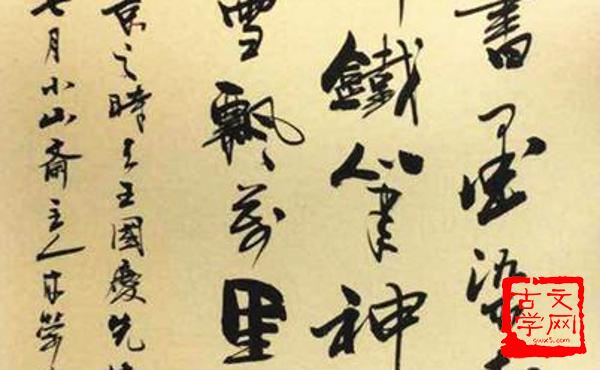 書墨染
鐵筆神
雪飄萬里
京之時王國慶先
七月小山齋主人
古文
学网
gwx5.com